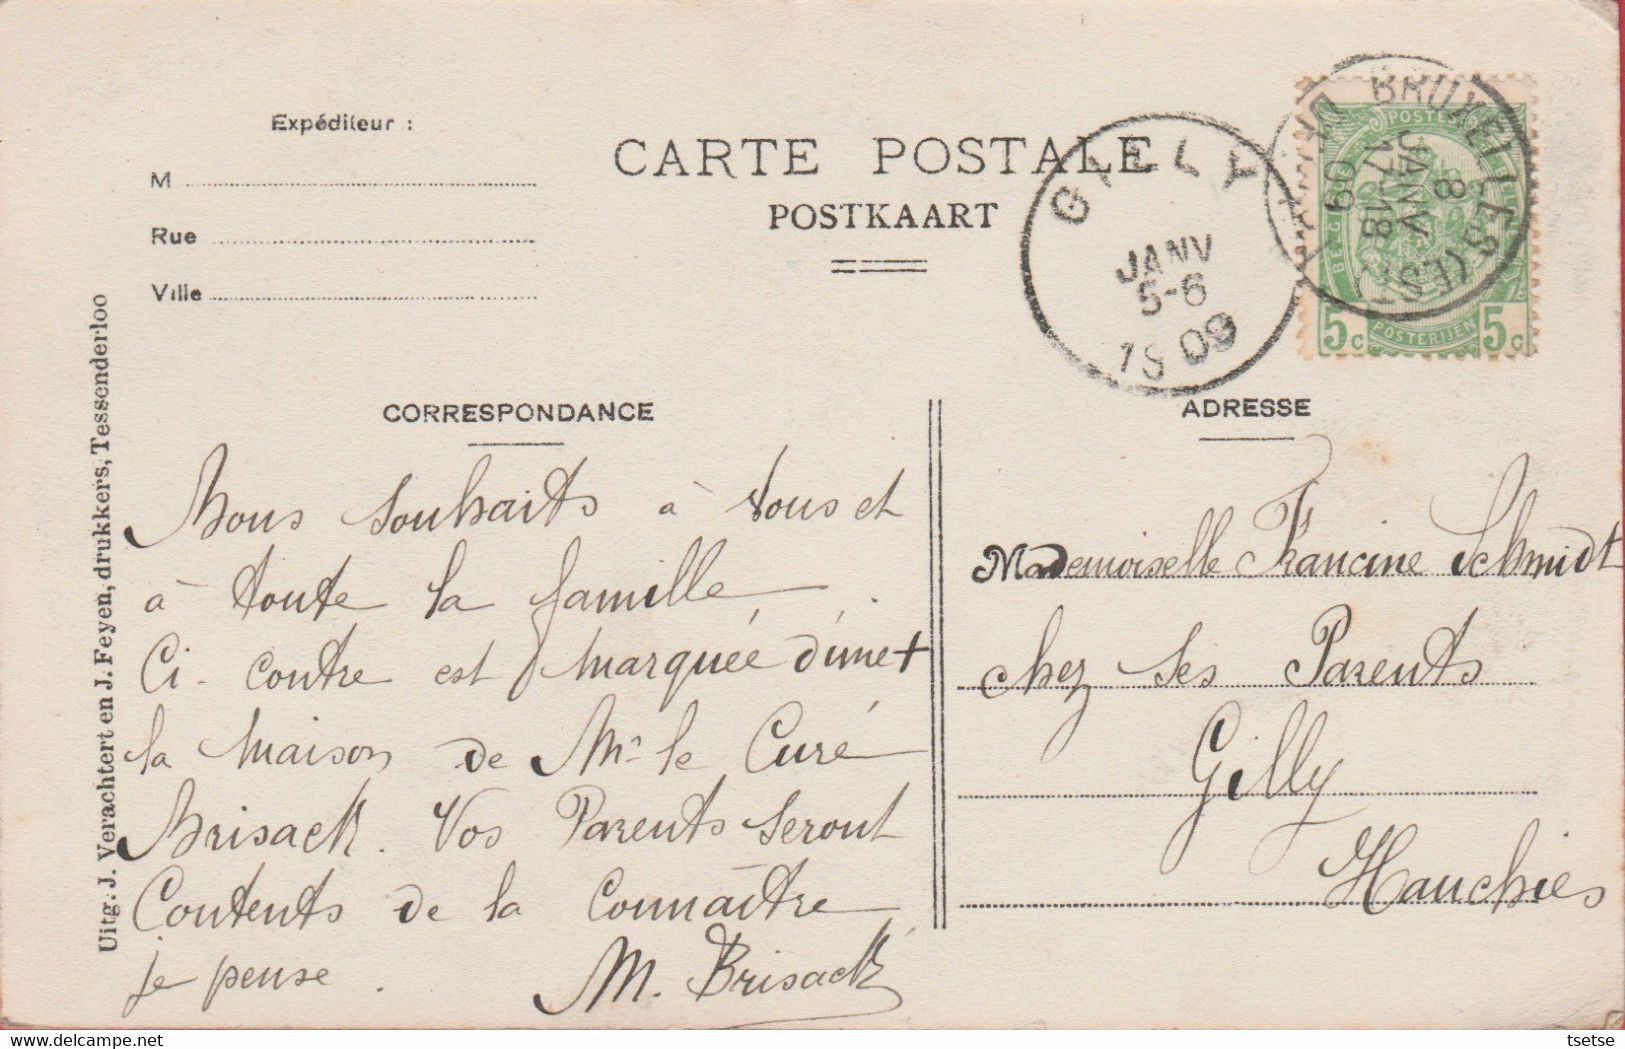 Expéditeur :
M
Rue
Ville
CARTE POSTALE
POSTKAART
GILLY
JANV
5-6
1909
BRUXELLES (EST)
8
JANV
17-18
09
POSTES
5c
POSTERIJEN
5c
Uitg: J. Verachtert en J. Feyen, drukkers, Tessenderloo
CORRESPONDANCE
Bons souhaits à vous et
à toute la famille.
Ci-contre est marquée d'une +
la maison de Mr le Curé
Brisack. Vos Parents seront
Contents de la Connaître
je pense.
M. Brisack
ADRESSE
Mademoiselle Francine Schmidt
chez ses Parents
Gilly
Hauchies
www.delcampe.net
tsetse